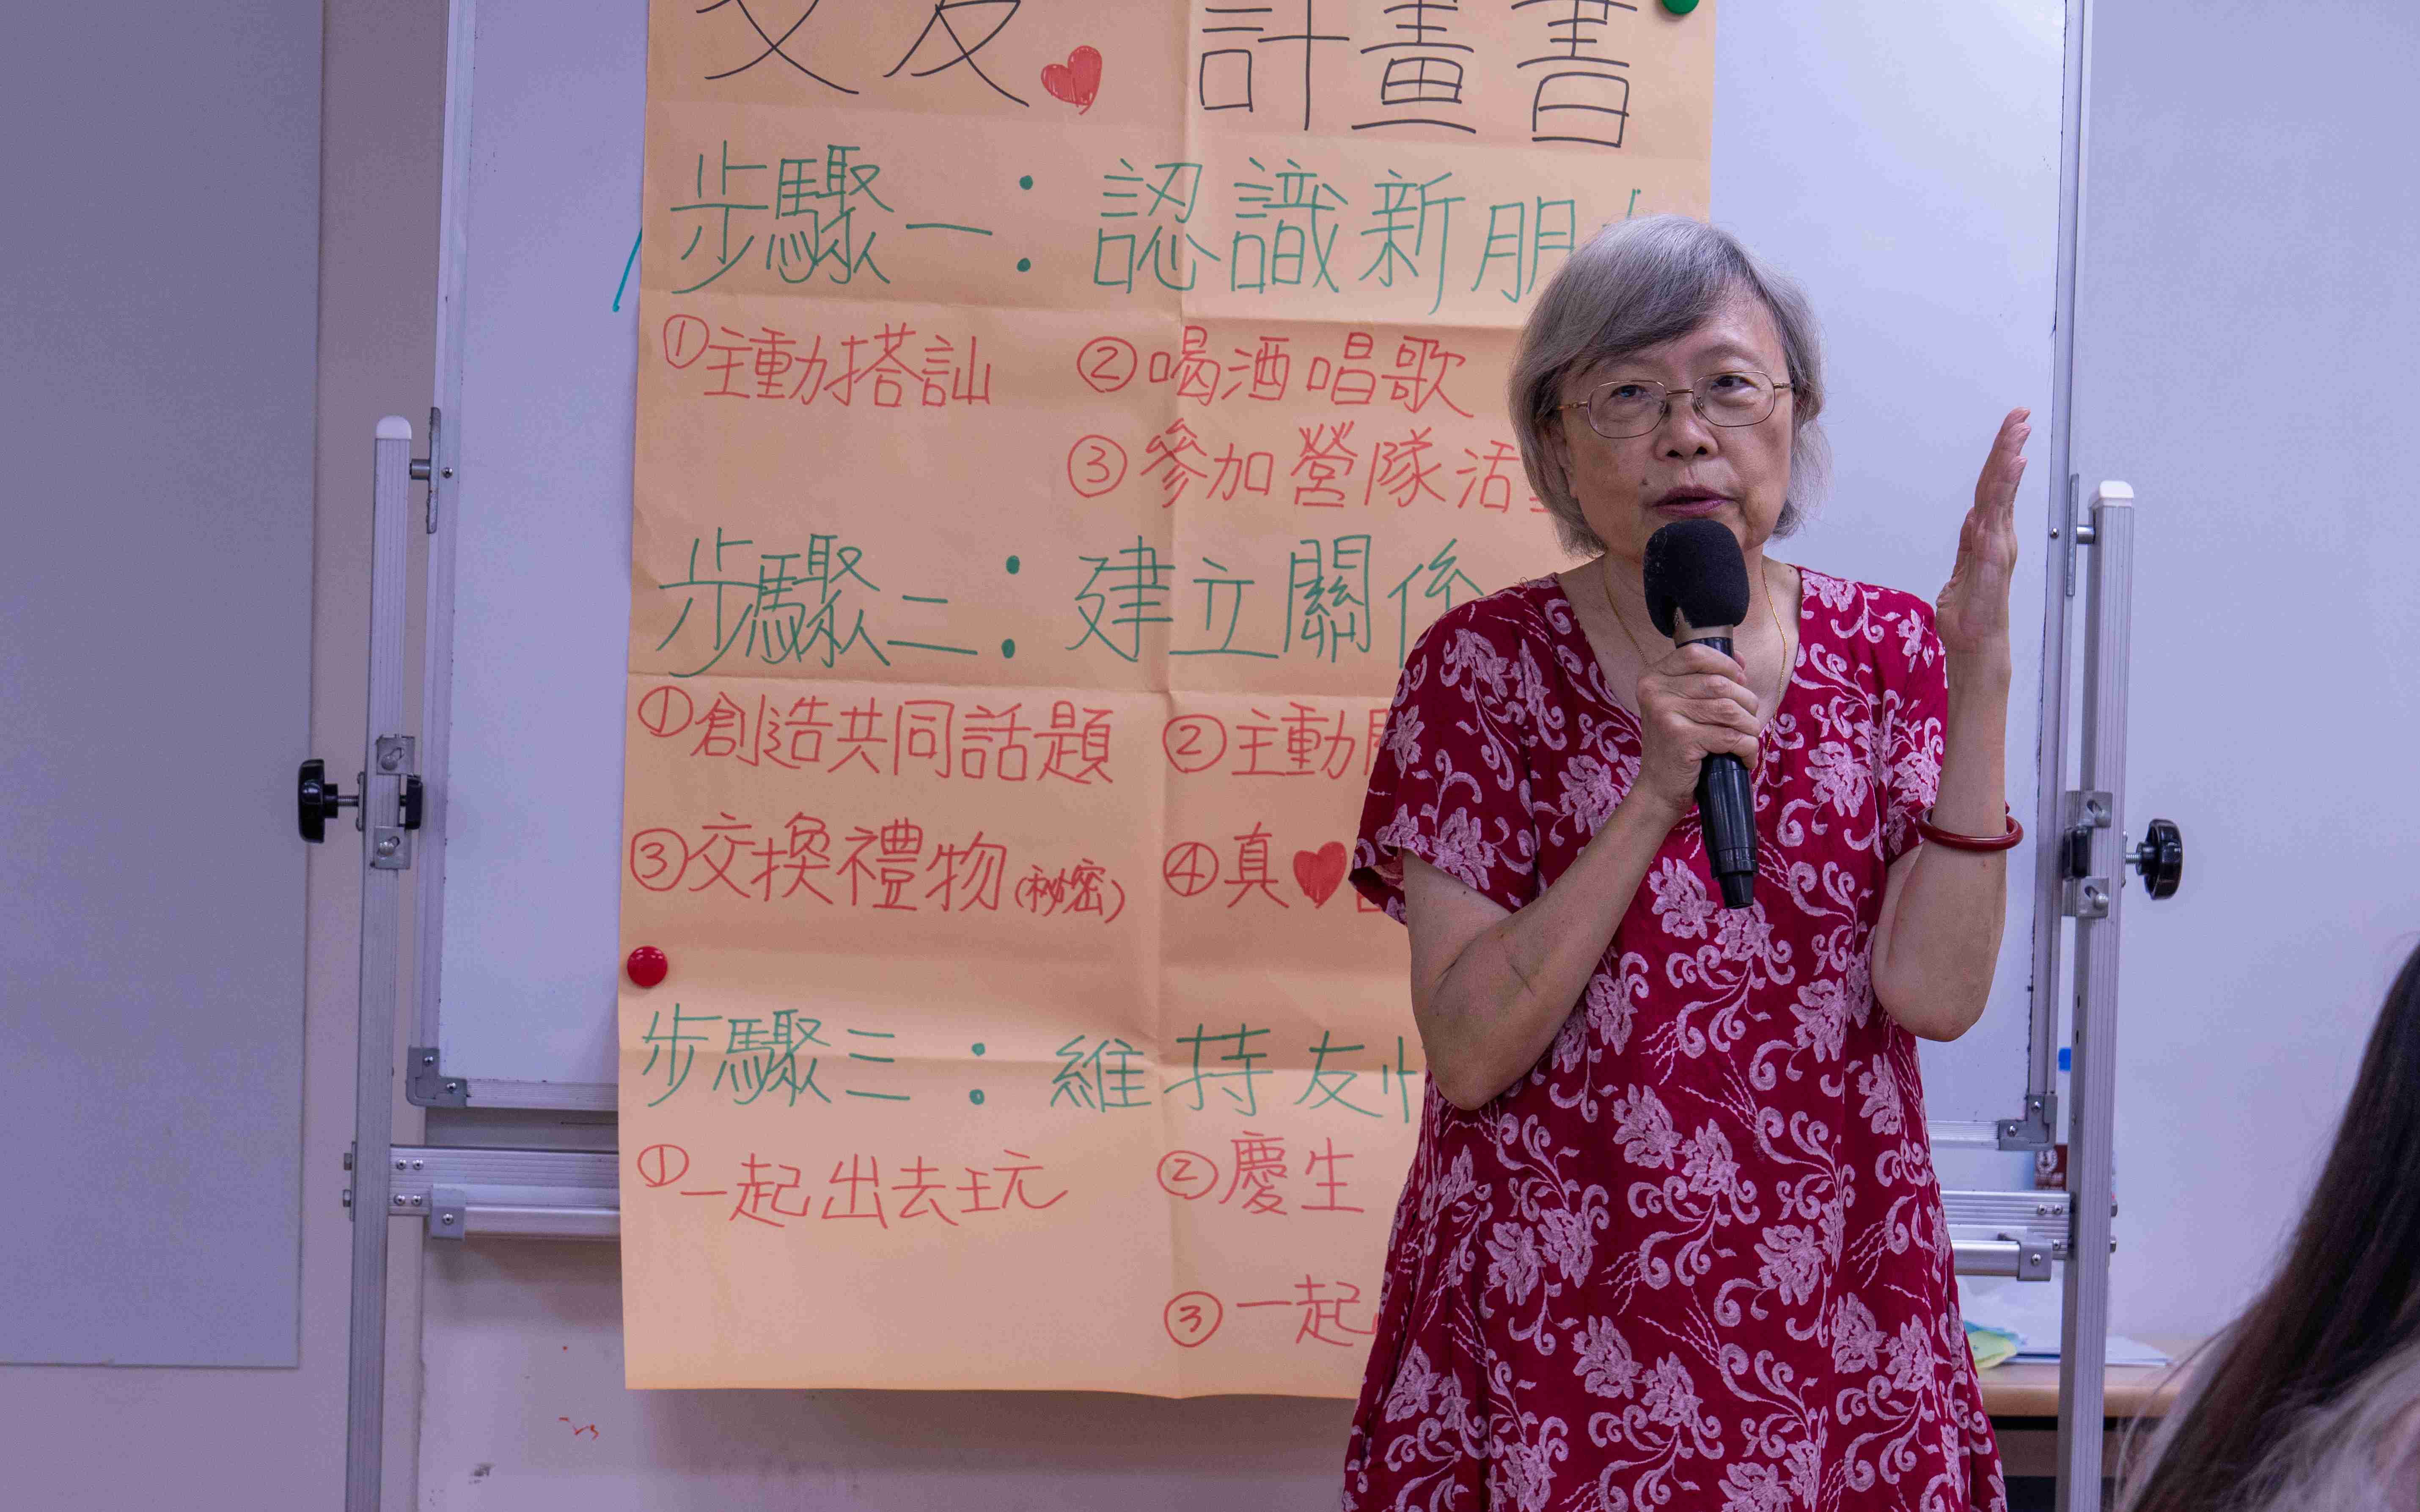 交友♥計畫書
步驟一：認識新朋
①主動搭訕 ②喝酒唱歌
③參加營隊活
步驟二：建立關係
①創造共同話題 ②主動
③交換禮物(秘密) ④真♥
步驟三：維持友
①一起出去玩 ②慶生
③一起